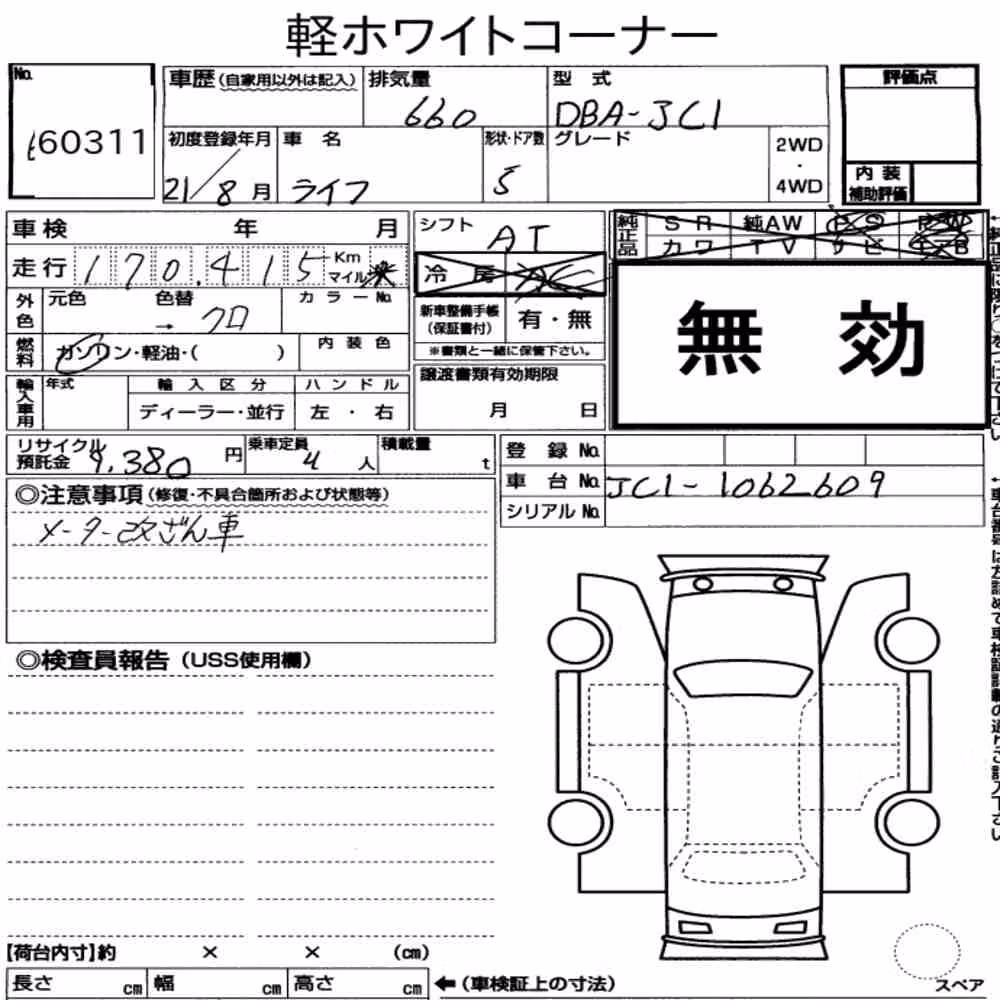 軽ホワイトコーナー
No.
60311
車歴(自家用以外は記入)
排気量
660
型式
DBA-JC1
評価点
初度登録年月
21/8月
車名
ライフ
形状・ドア数
5
グレード
2WD
・
4WD
内装
補助評価
車検 年 月
走行 170,415 Km
マイル
シフト
AT
冷房
純正品
SR 純AW PS PW
カワ TV ナビ
外色
元色 色替 カラーNo.
→ クロ
新車整備手帳
(保証書付)
有・無
※書類と一緒に保管下さい。
無効
燃料
ガソリン・軽油・( )
内装色
輸入車用
年式
輸入区分
ハンドル
ディーラー・並行
左・右
譲渡書類有効期限
月 日
リサイクル
預託金
9,380円
乗車定員
4人
積載量
t
登録No.
車台No. JC1-1062609
シリアルNo.
◎注意事項(修復・不具合箇所および状態等)
メーター改ざん車
◎検査員報告(USS使用欄)
【荷台内寸】約 × × (cm)
長さ cm 幅 cm 高さ cm
←(車検証上の寸法)
スペア